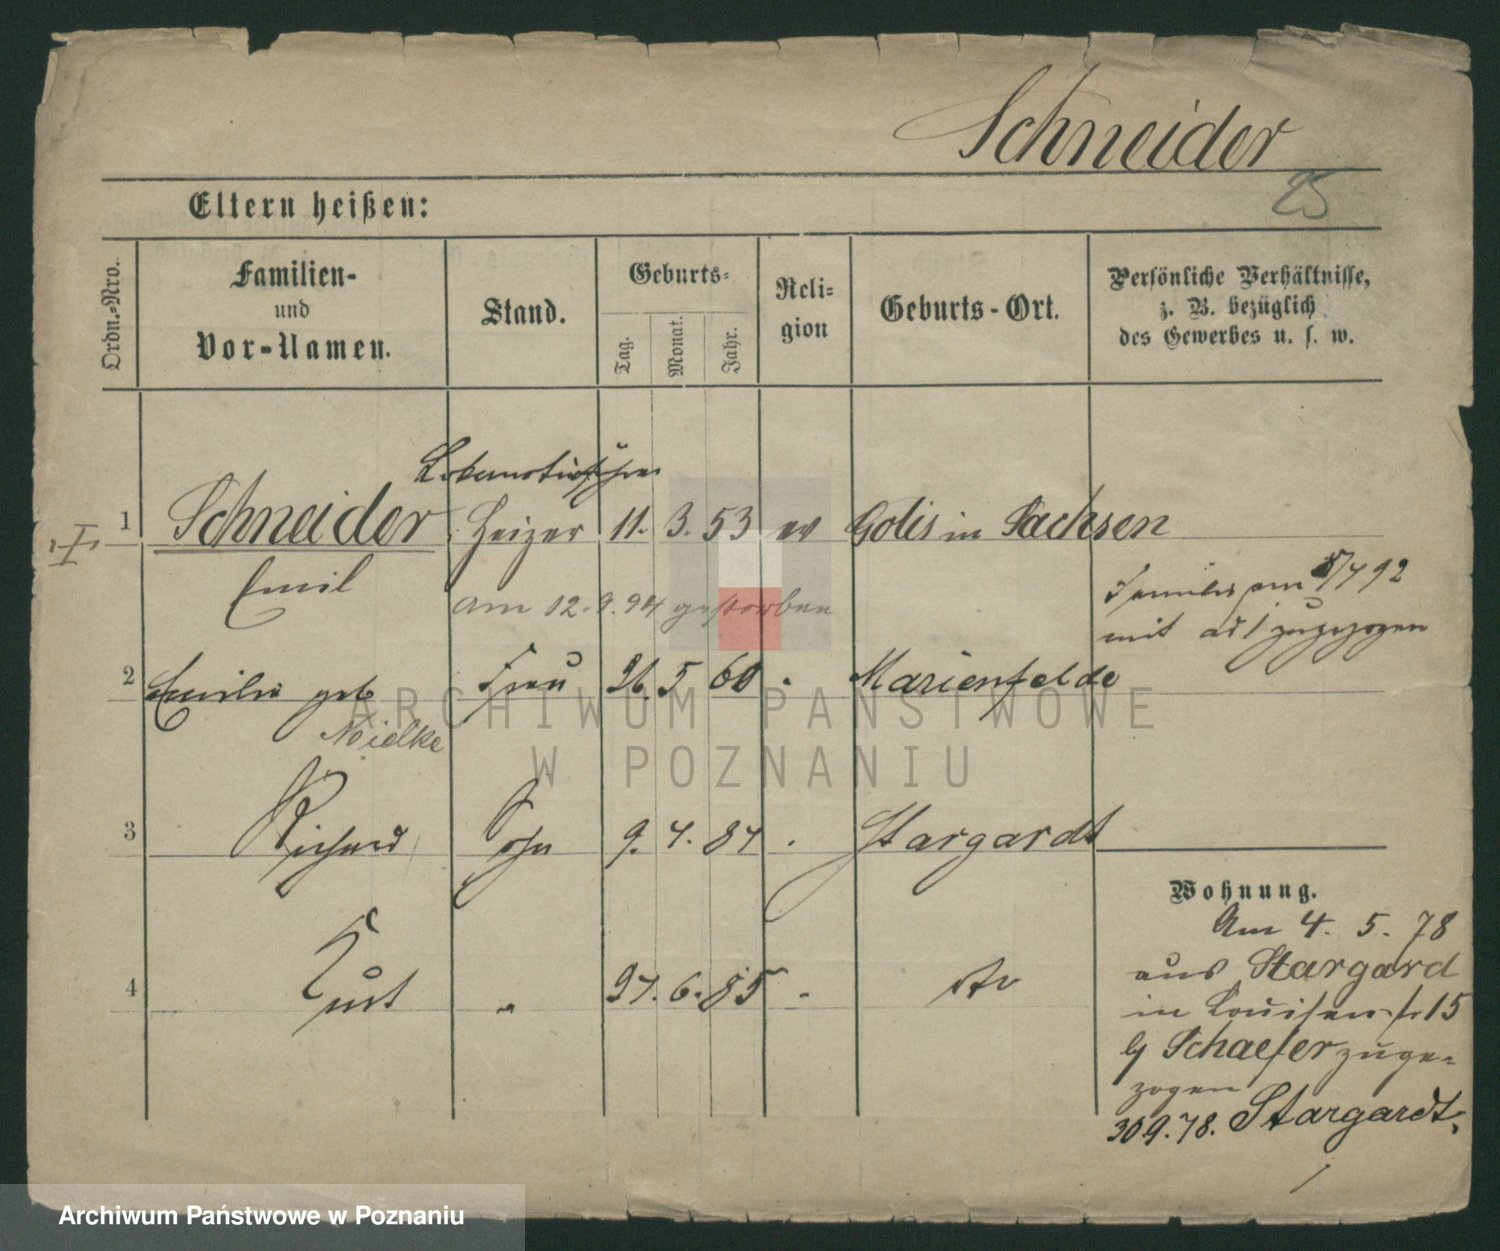 Schneider
25
Eltern heißen:
Ordn.-Nro.
Familien-
und
Vor-Namen.
Stand.
Geburts-
Tag.
Monat.
Jahr.
Reli-
gion
Geburts-Ort.
Persönliche Verhältnisse,
z. B. bezüglich
des Gewerbes u. s. w.
Lokomotivführer
1 Schneider Heizer 11. 3. 53 ev Golis in Sachsen
I
Emil
am 12. 9. 94 gestorben
Familie am 8/7 92
mit zugezogen
2 Emilie geb Frau 26. 5 60 " Marienfelde
Mielke
3 Richard Sohn 9. 7. 84 " Stargardt
4 Kurt " 27. 6. 85 "
Wohnung.
Am 4. 5. 78
aus Stargard
in Louisenstr 15
b/ Schaefer zuge-
zogen
30 9. 78. Stargardt.
ARCHIWUM PAŃSTWOWE
W POZNANIU
Archiwum Państwowe w Poznaniu